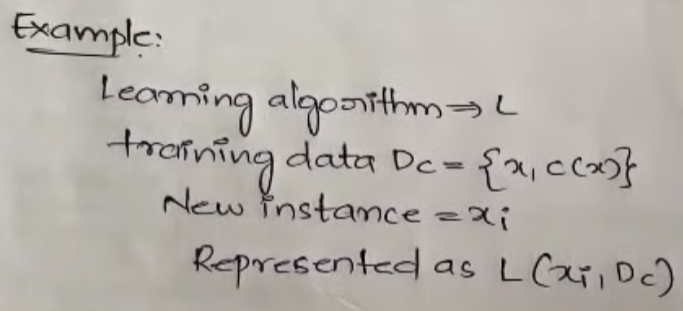 Example:
Learning algorithm ⇒ L
training data Dc = {x, c(x)}
New instance = xi
Represented as L(xi, Dc)